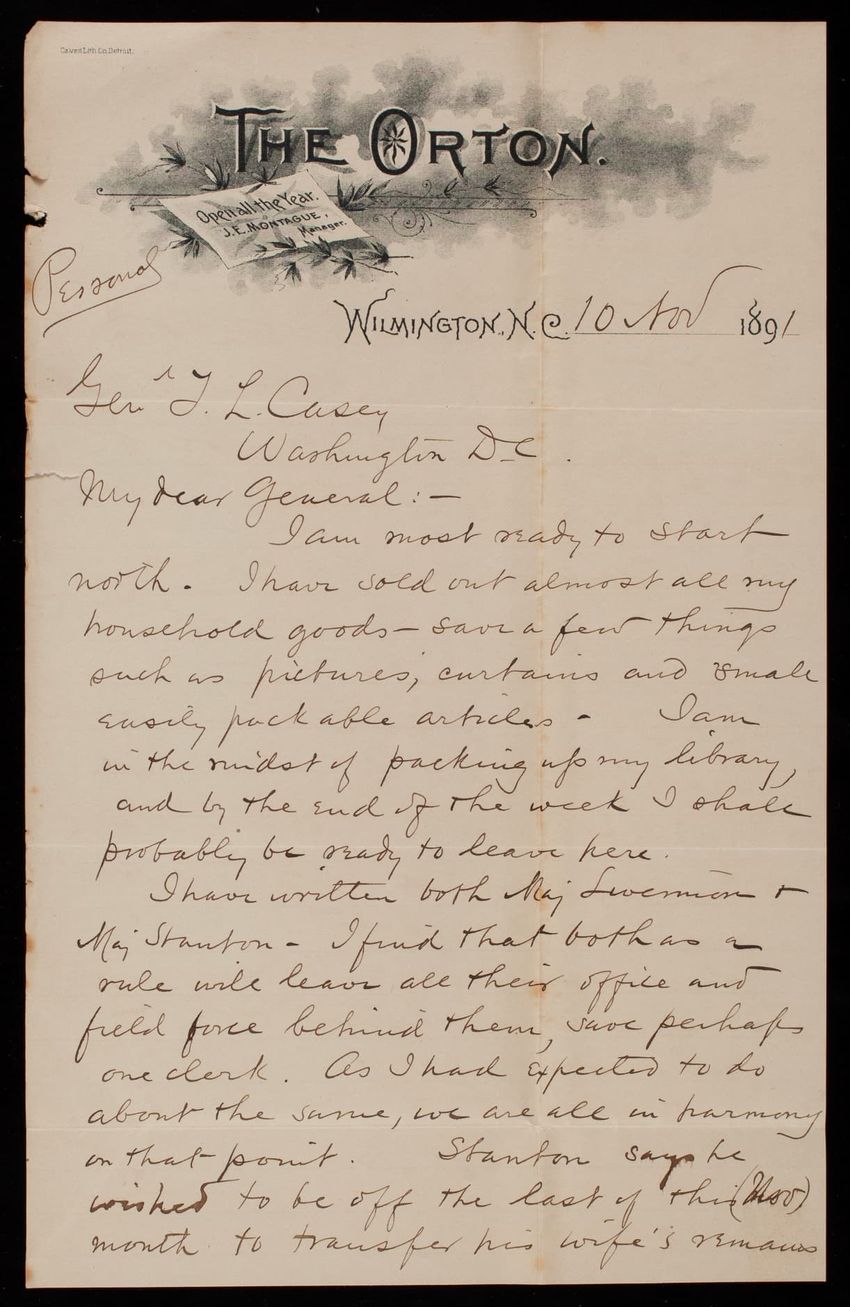 Calvert Lith. Co. Detroit.
THE ORTON.
Open all the Year.
J. E. MONTAGUE,
Manager.
Personal
WILMINGTON, N. C. 10 Nov 1891
Genl T. L. Casey
Washington D-C.
My dear General:-
I am most ready to start
north. I have sold out almost all my
household goods - save a few things
such as pictures, curtains and small
easily packable articles - I am
in the midst of packing up my library,
and by the end of the week I shall
probably be ready to leave here.
I have written both Maj +
Maj Stanton - I find that both as a
rule will leave all their office and
field force behind them, save perhaps
one clerk. As I had expected to do
about the same, we are all in harmony
on that point. Stanton says he
wished to be off the last of this (Nov)
month to transfer his wife's remains